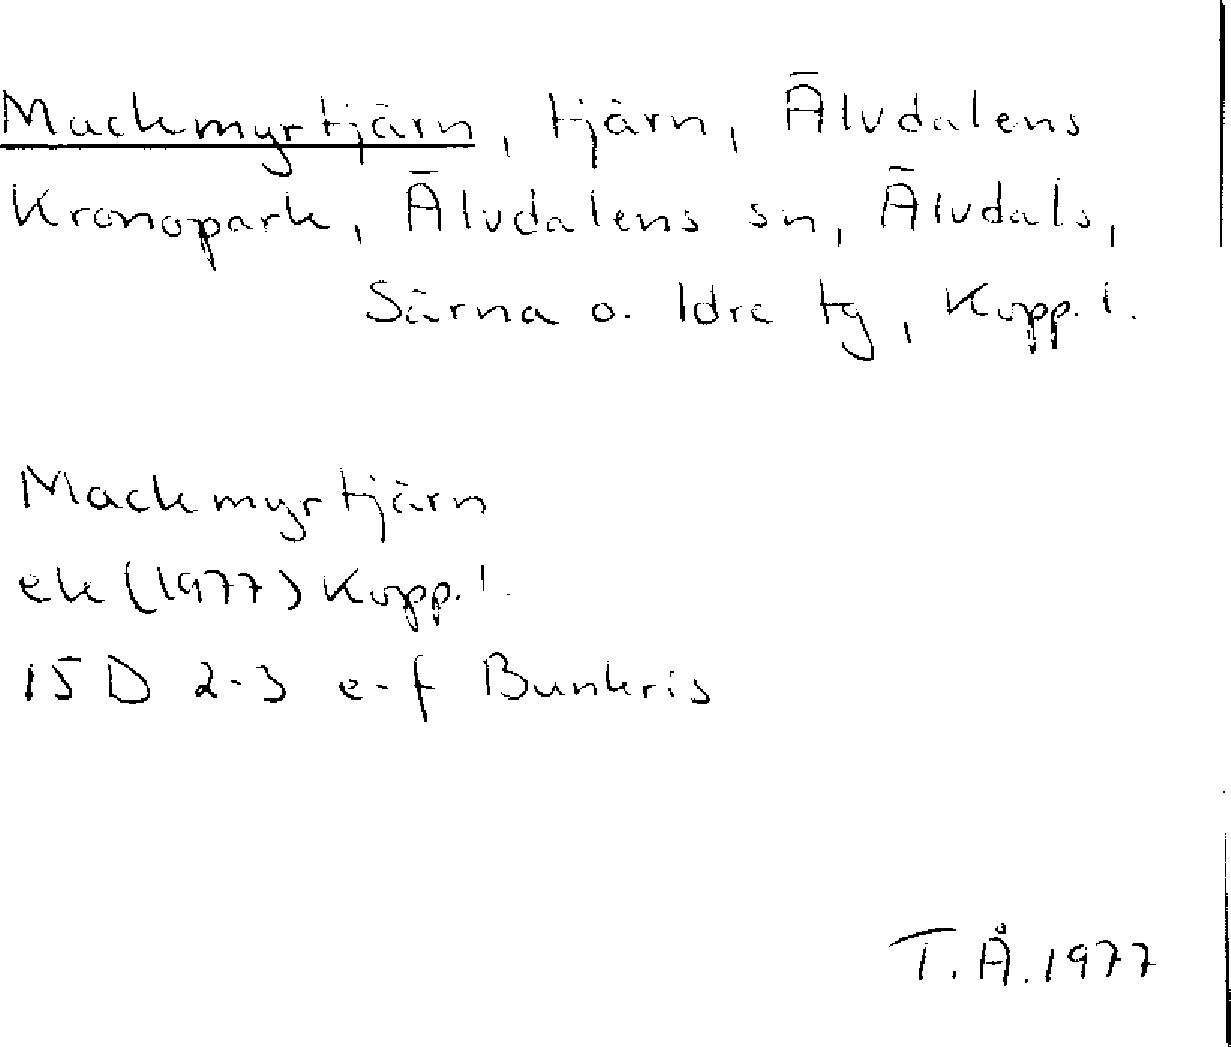 Mackmyrtjärn, tjärn, Älvdalens
Kronopark, Älvdalens sn, Älvdals,
Särna o. Idre tg, Kopp. l.
Mackmyrtjärn
ek (1977) Kopp. l.
15 D 2-3 e-f Bunkris
T.Å. 1977